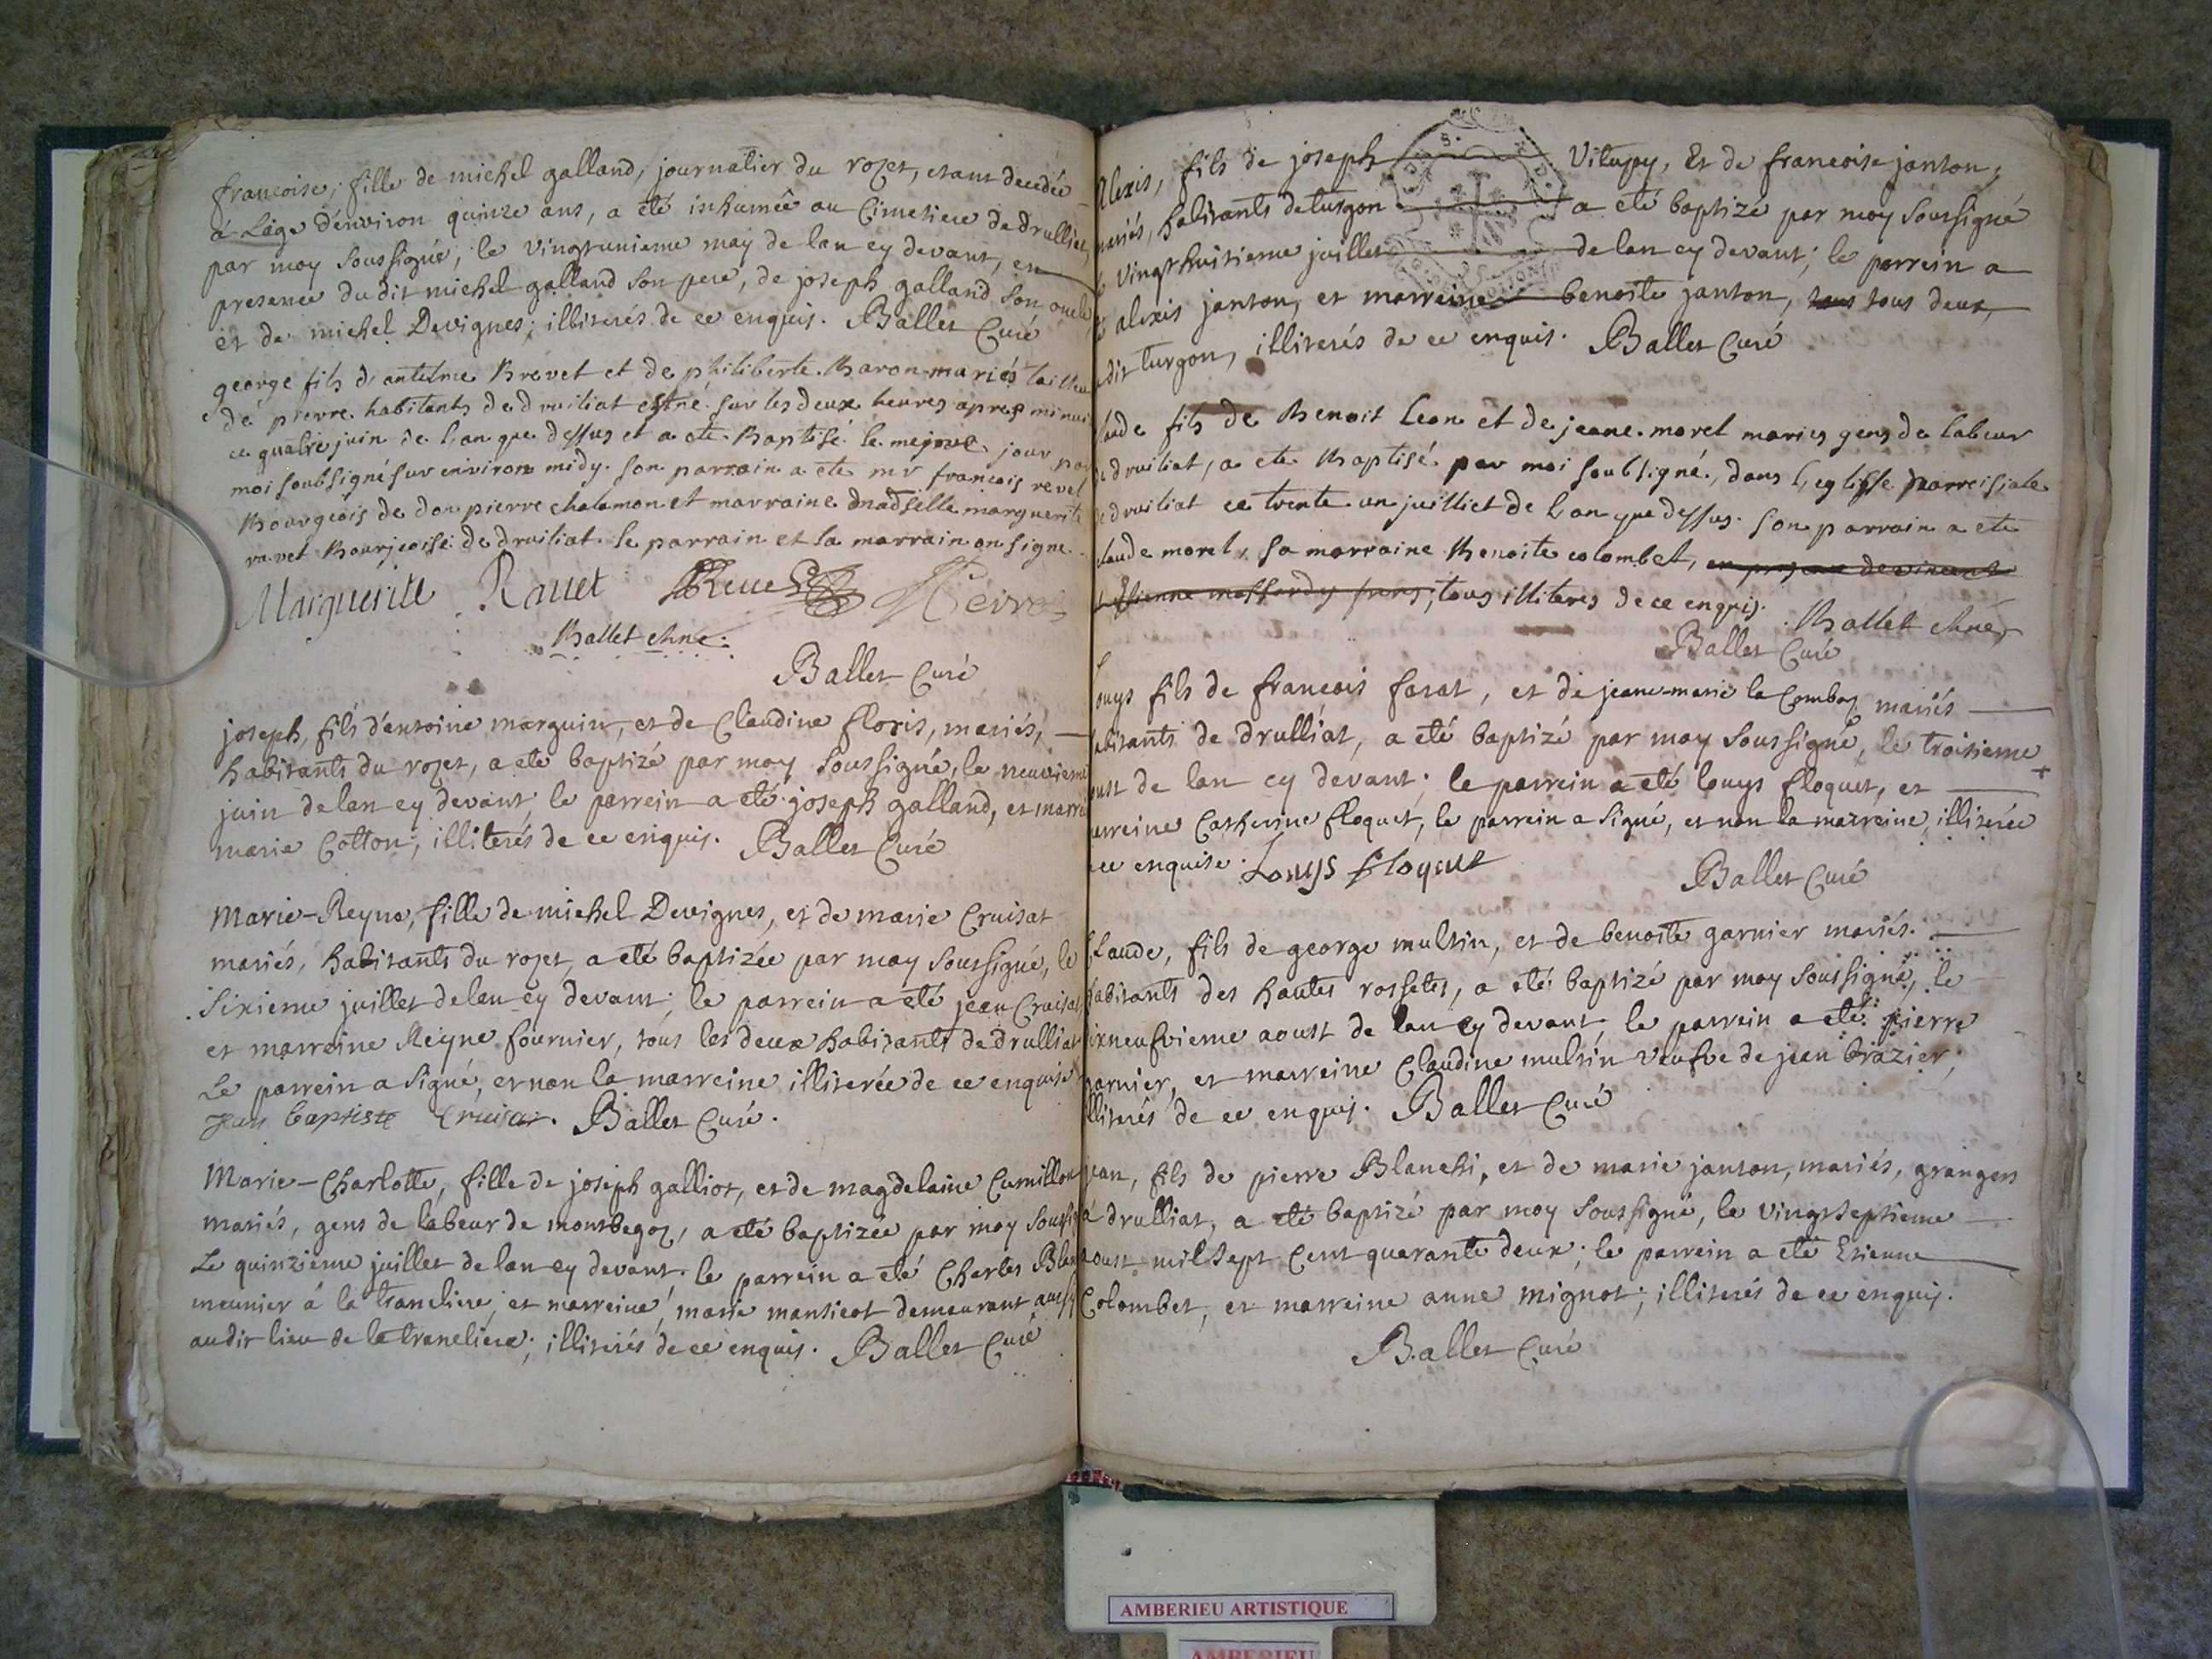 françoise, fille de michel galland, journalier du rozet, etant decedée
à Lâge d'environ quinze ans, a été inhumée au Cimetiere de drulliat,
par moy soussigné, le vingtunieme may de lan cy devant, en
presence dudit michel galland son pere, de joseph galland son oncle
et de michel Devignes; illiterés de ce enquis. Ballet Curé
george fils d'antelme Brevet et de philiberte Baron mariés tailleur
de pierre habitants de druiliat est né sur les deux heures apres minuit
ce quatre juin de l'an que dessus et a ete Baptisé le mejme jour par
moi soubsigné sur environ midy. son parrain a ete mr francois revel
Bourgeois de don pierre chalamon et marraine madselle marguerite
ravet Bourjeoise de druiliat. le parrain et la marrain on signe.
Marguerite Rauet Reuel
Ballet chne.
Ballet Curé
joseph, fils d'entoine marguin, et de Claudine floris, mariés,
habitants du rozet, a eté baptizé par moy soussigné, le neuvieme
juin de lan cy devant; le parrein a eté joseph galland, et marre
marie Cotton; illiterés de ce enquis. Ballet Curé
Marie-Reyne, fille de michel Devignes, et de marie Cruisat
mariés, habitants du rozet, a eté baptizée par moy soussigné, le
sixieme juillet de lan cy devant; le parrein a eté jean Cruisat
et marreine Reyne fournier, tous les deux habitants de drulliat
Le parrein a signé, et non la marreine illiterée de ce enquise
Jean baptiste Cruisat. Ballet Curé.
Marie-Charlotte, fille de joseph galliot, et de magdelaine Cumillon
mariés, gens de labeur de montbegoz, a eté baptizée par moy soussig
Le quinzieme juillet de lan cy devant. le parrein a eté Charles Blan
meunier à la tranclière, et marreine, marie manticot demeurant aussy
audit lieu de la tranclière; illiterés de ce enquis. Ballet Curé
Alexis, fils de joseph Vitupy, Et de francoise janton,
mariés, habitants de turgon a eté baptizé par moy soussigné
le vingt huitieme juillet de lan cy devant; le parrein a
eté alexis janton, et marreine benoite janton, tous tous deux,
dudit turgon, illiterés de ce enquis. Ballet Curé
laude fils de Benoit Leon et de jeane morel maries gens de labeur
de druiliat, a ete Baptisé par moi soubsigné, dans l'eglisse parroisiale
de druiliat ce trente un juilliet de l'an que dessus. son parrain a ete
claude morel, sa marraine Benoite colombet, en presence de vincent
et Estienne massardy, tous illiteres de ce enquis. Ballet chne
Ballet Curé
Louys fils de francois farat, et de jeane-marie la Combaz mariés
habitants de drulliat, a eté baptizé par moy soussigné, le troisieme
oust de lan cy devant; le parrein a eté louys floquet, et
marreine Catherine floquet, le parrein a signé, et non la marreine, illiterée
de ce enquise. Louys floquet Ballet Curé
Claude, fils de george multin, et de benoite garnier mariés.
habitants des hautes rossetes, a eté baptizé par moy soussigné, le
dixneufvieme aoust de lan cy devant, le parrein a eté pierre
garnier, et marreine Claudine multin veufve de jean brazier;
illiterés de ce enquis. Ballet Curé
jean, fils de pierre Blanchi, et de marie janton, mariés, grangers
à drulliat, a eté baptizé par moy soussigné, le vingt septieme
aoust mil sept cent quarante deux; le parrein a eté Etienne
Colombet, et marreine anne mignot; illiterés de ce enquis.
Ballet Curé
AMBERIEU ARTISTIQUE
AMBERIEU